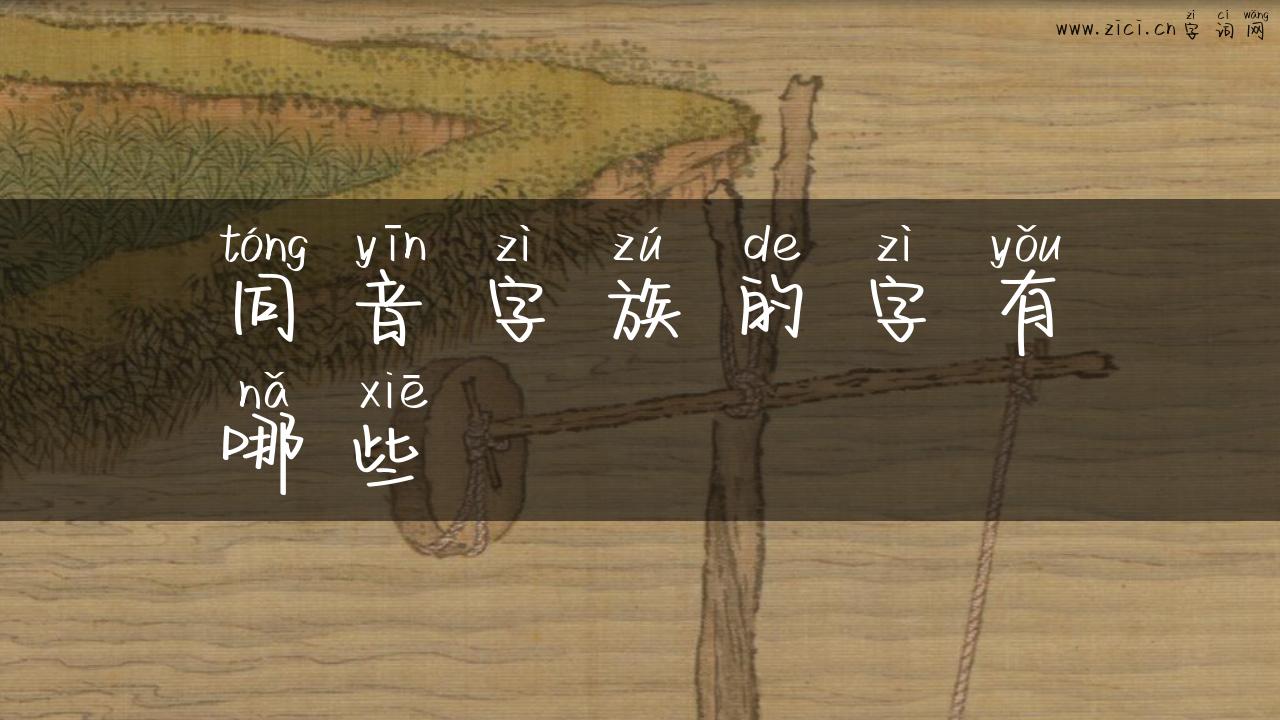 zì cí wǎng
www.zici.cn 字词网
tóng yīn zì zú de zì yǒu
同音字族的字有
nǎ xiē
哪些